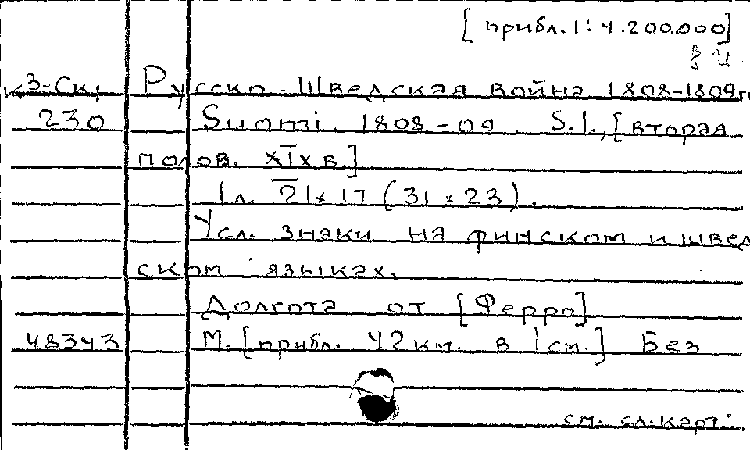 [прибл. 1:4.200.000]
К3-Ск. Русско-Шведская война 1808-1809гг
230 Suomi. 1808-09. S.l., [вторая
полов. XIX в.]
1 л. 21×17 (31×23).
Усл. знаки на финском и швед
ском языках.
Долгота от [Ферро]
48343 М. [прибл. 42 км. в 1 см.] Без
см. сл. карт.